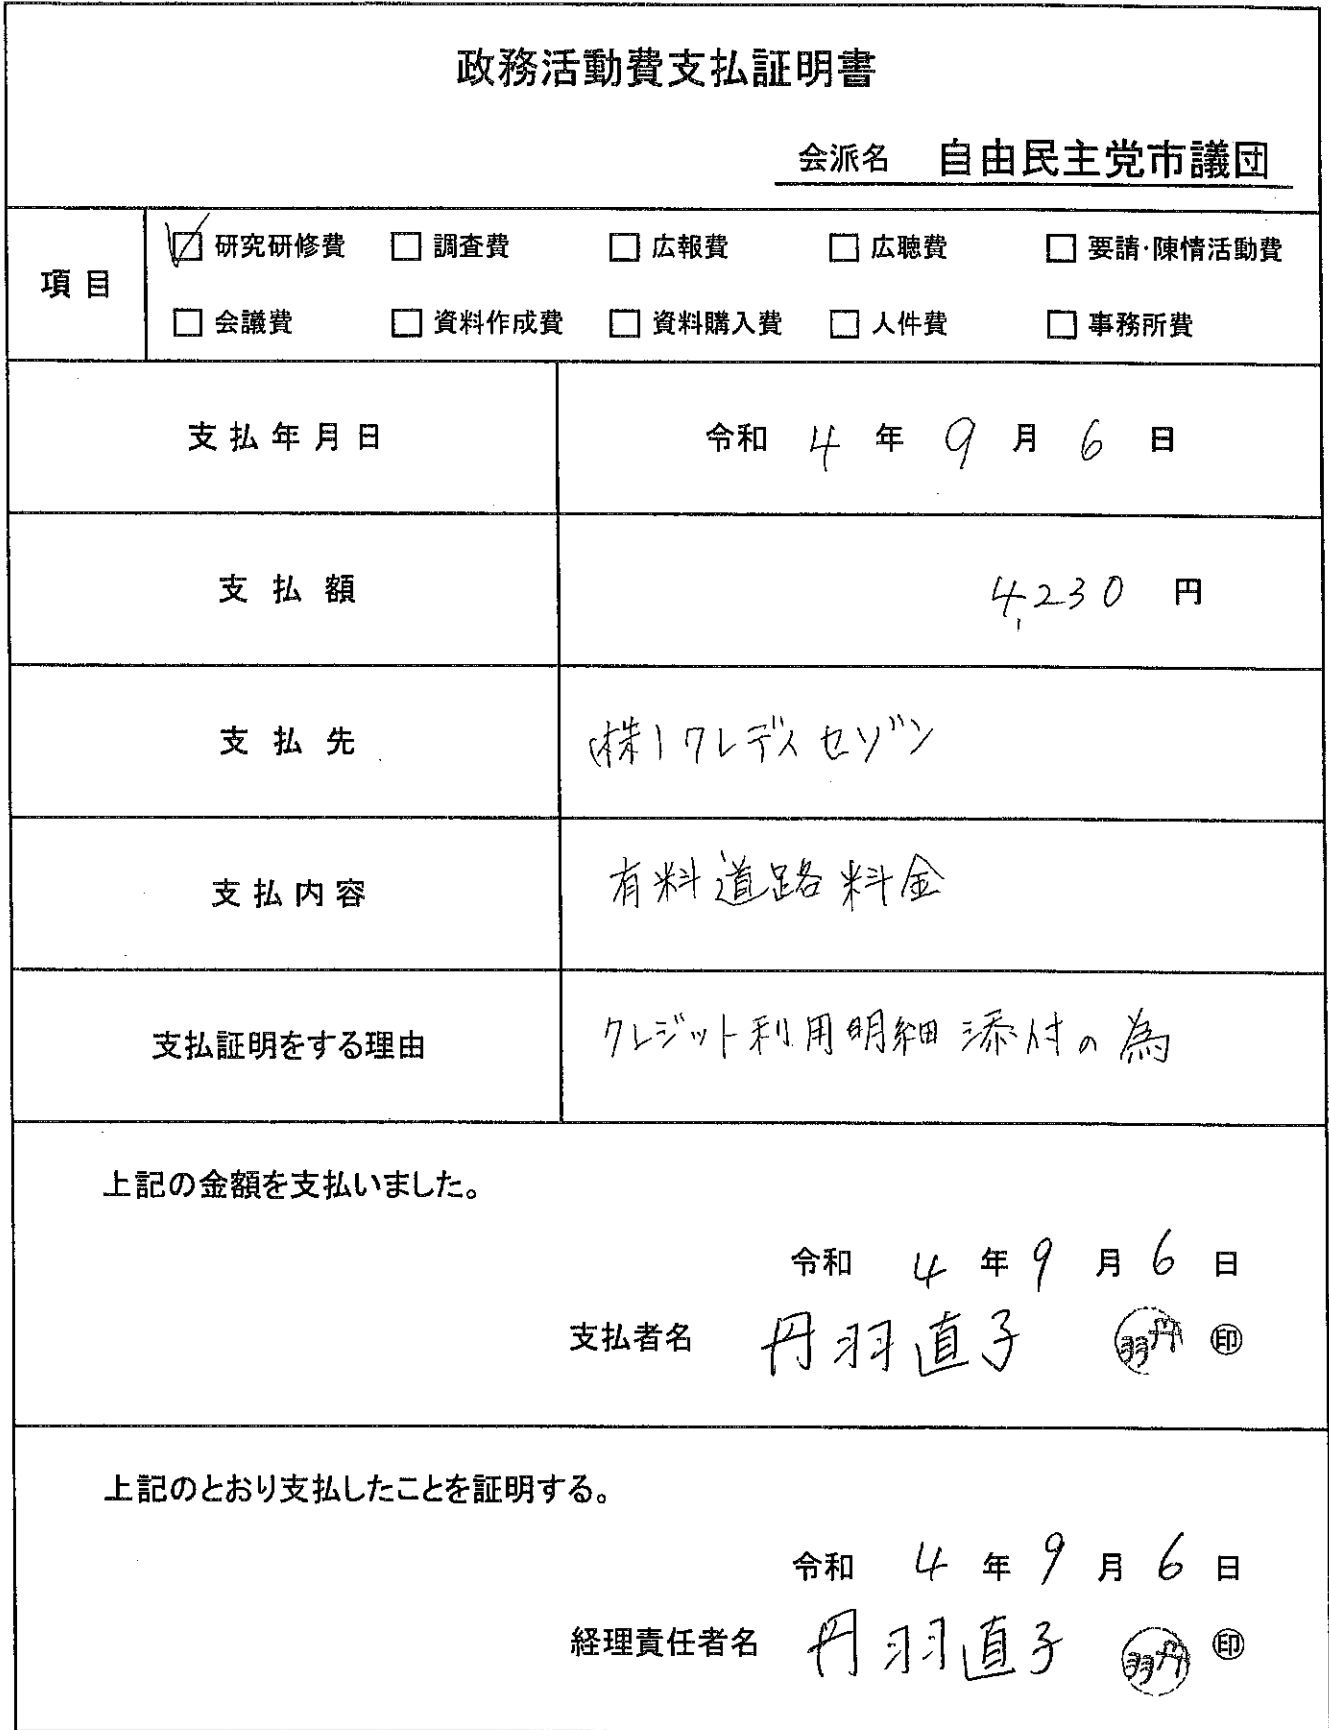 政務活動費支払証明書
会派名 自由民主党市議団
項目
☑ 研究研修費 □ 調査費 □ 広報費 □ 広聴費 □ 要請・陳情活動費
□ 会議費 □ 資料作成費 □ 資料購入費 □ 人件費 □ 事務所費
支払年月日 令和 4 年 9 月 6 日
支払額 4,230 円
支払先 (株)クレディセゾン
支払内容 有料道路料金
支払証明をする理由 クレジット利用明細添付の為
上記の金額を支払いました。
令和 4 年 9 月 6 日
支払者名 丹羽直子 丹羽 ㊞
上記のとおり支払したことを証明する。
令和 4 年 9 月 6 日
経理責任者名 丹羽直子 丹羽 ㊞